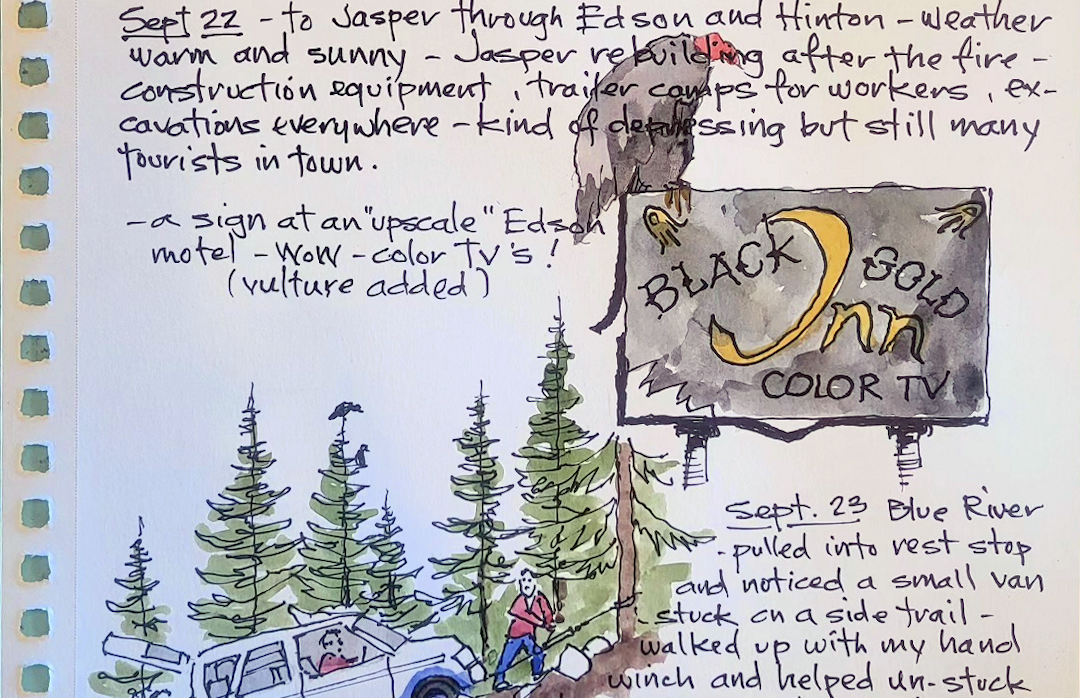 Sept 22 - to Jasper through Edson and Hinton - weather
warm and sunny - Jasper rebuilding after the fire -
construction equipment, trailer camps for workers, ex-
cavations everywhere - kind of depressing but still many
tourists in town.
- a sign at an "upscale" Edson
motel - WoW - color TV's!
(vulture added)
BLACK GOLD
Inn
COLOR TV
Sept. 23 Blue River
- pulled into rest stop
and noticed a small van
stuck on a side trail -
walked up with my hand
winch and helped un-stuck